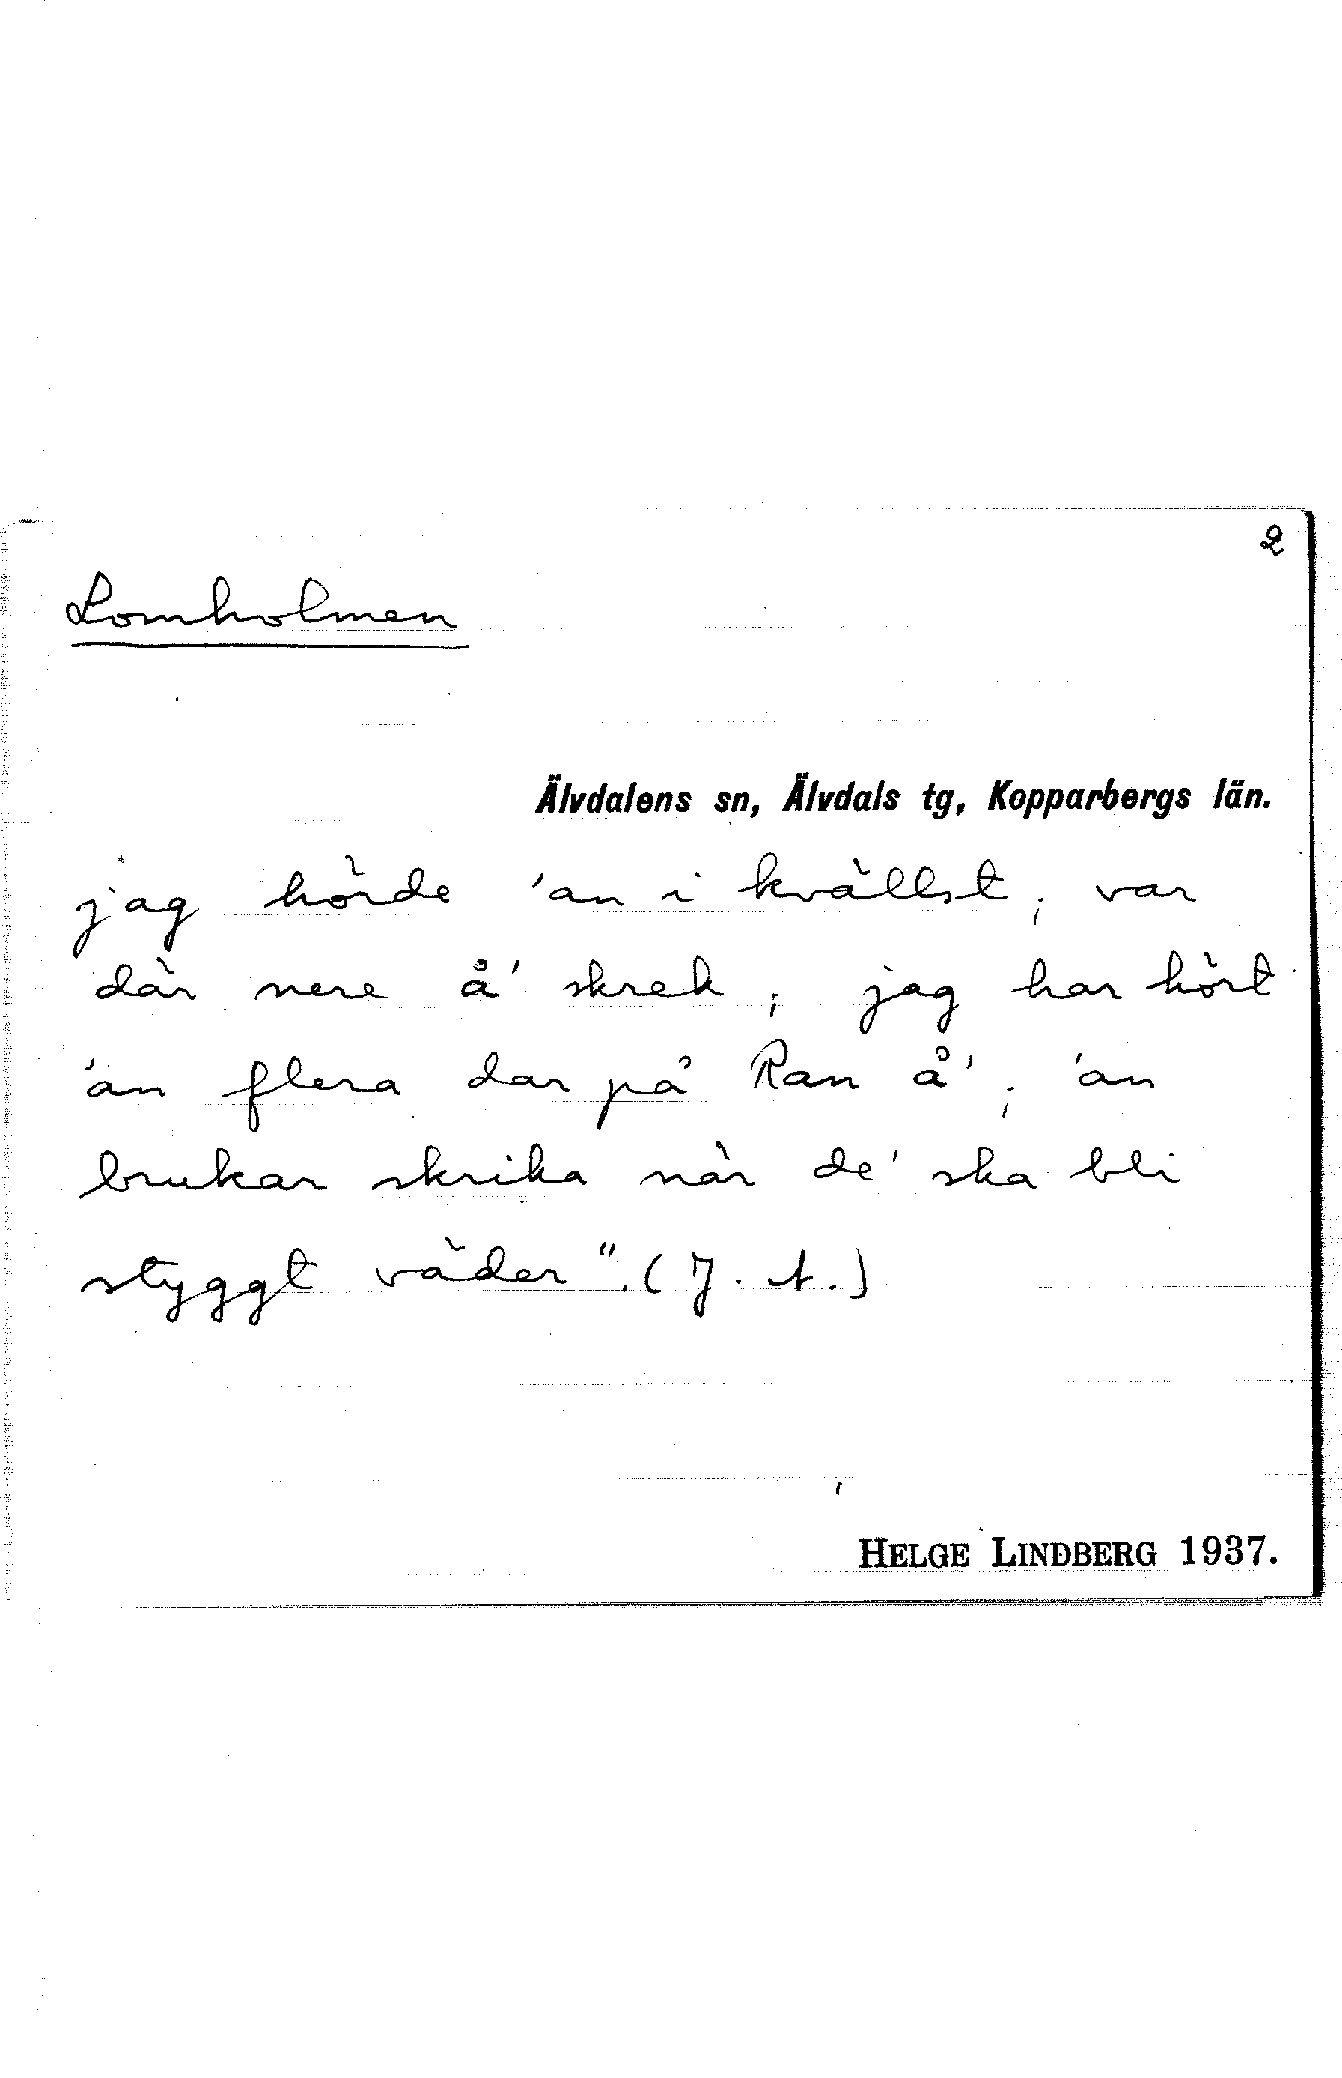 2
Lomholmen
Älvdalens sn, Älvdals tg, Kopparbergs län.
jag hörde 'an i kvällst, var
där nere å' skrek; jag har hört
'an flera dar på Ran å'; 'an
brukar skrika när de' ska bli
styggt väder". (J. A.)
HELGE LINDBERG 1937.